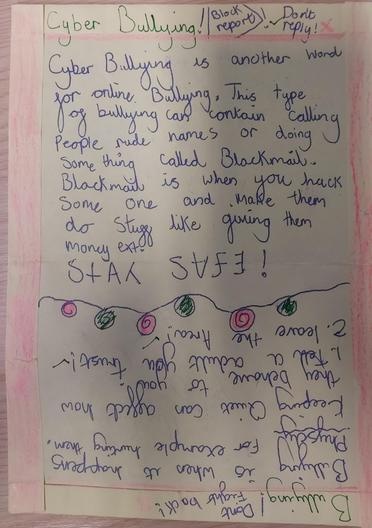 Cyber Bullying! Block report! Dont reply!
Cyber Bullying is another word
for online Bullying. This type
of bullying can contain calling
People rude names or doing
Something called Blackmail.
Blackmail is when you hack
Some one and make them
do stuff like giving them
money ext.
STAY SAFE!
Bullying! Dont Fight back!
Bullying is when it happens
Physicly for example hurting them.
Keeping Quiet can affect how
they behave to you
1. tell a adult you trust!
2. leave the Area!